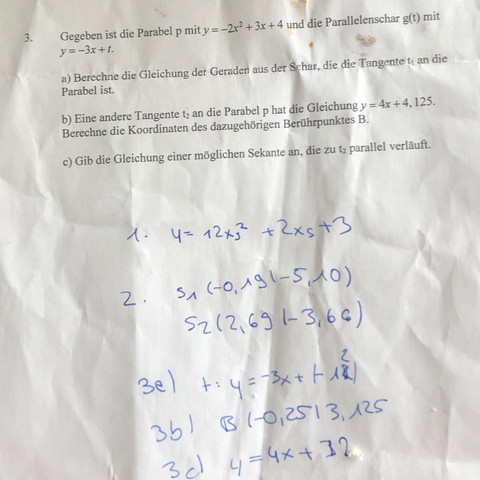 3. Gegeben ist die Parabel p mit y = −2x² + 3x + 4 und die Parallelenschar g(t) mit
y = −3x + t.
a) Berechne die Gleichung der Geraden aus der Schar, die die Tangente t₁ an die
Parabel ist.
b) Eine andere Tangente t₂ an die Parabel p hat die Gleichung y = 4x + 4,125.
Berechne die Koordinaten des dazugehörigen Berührpunktes B.
c) Gib die Gleichung einer möglichen Sekante an, die zu t₂ parallel verläuft.
1. y = 12x² + 2x + 3
2. S1 (-0,19 | -5,10)
S2 (2,69 | -3,66)
3a) t: y = -3x +
3b) B (-0,25 | 3,125
3c) y = 4x +